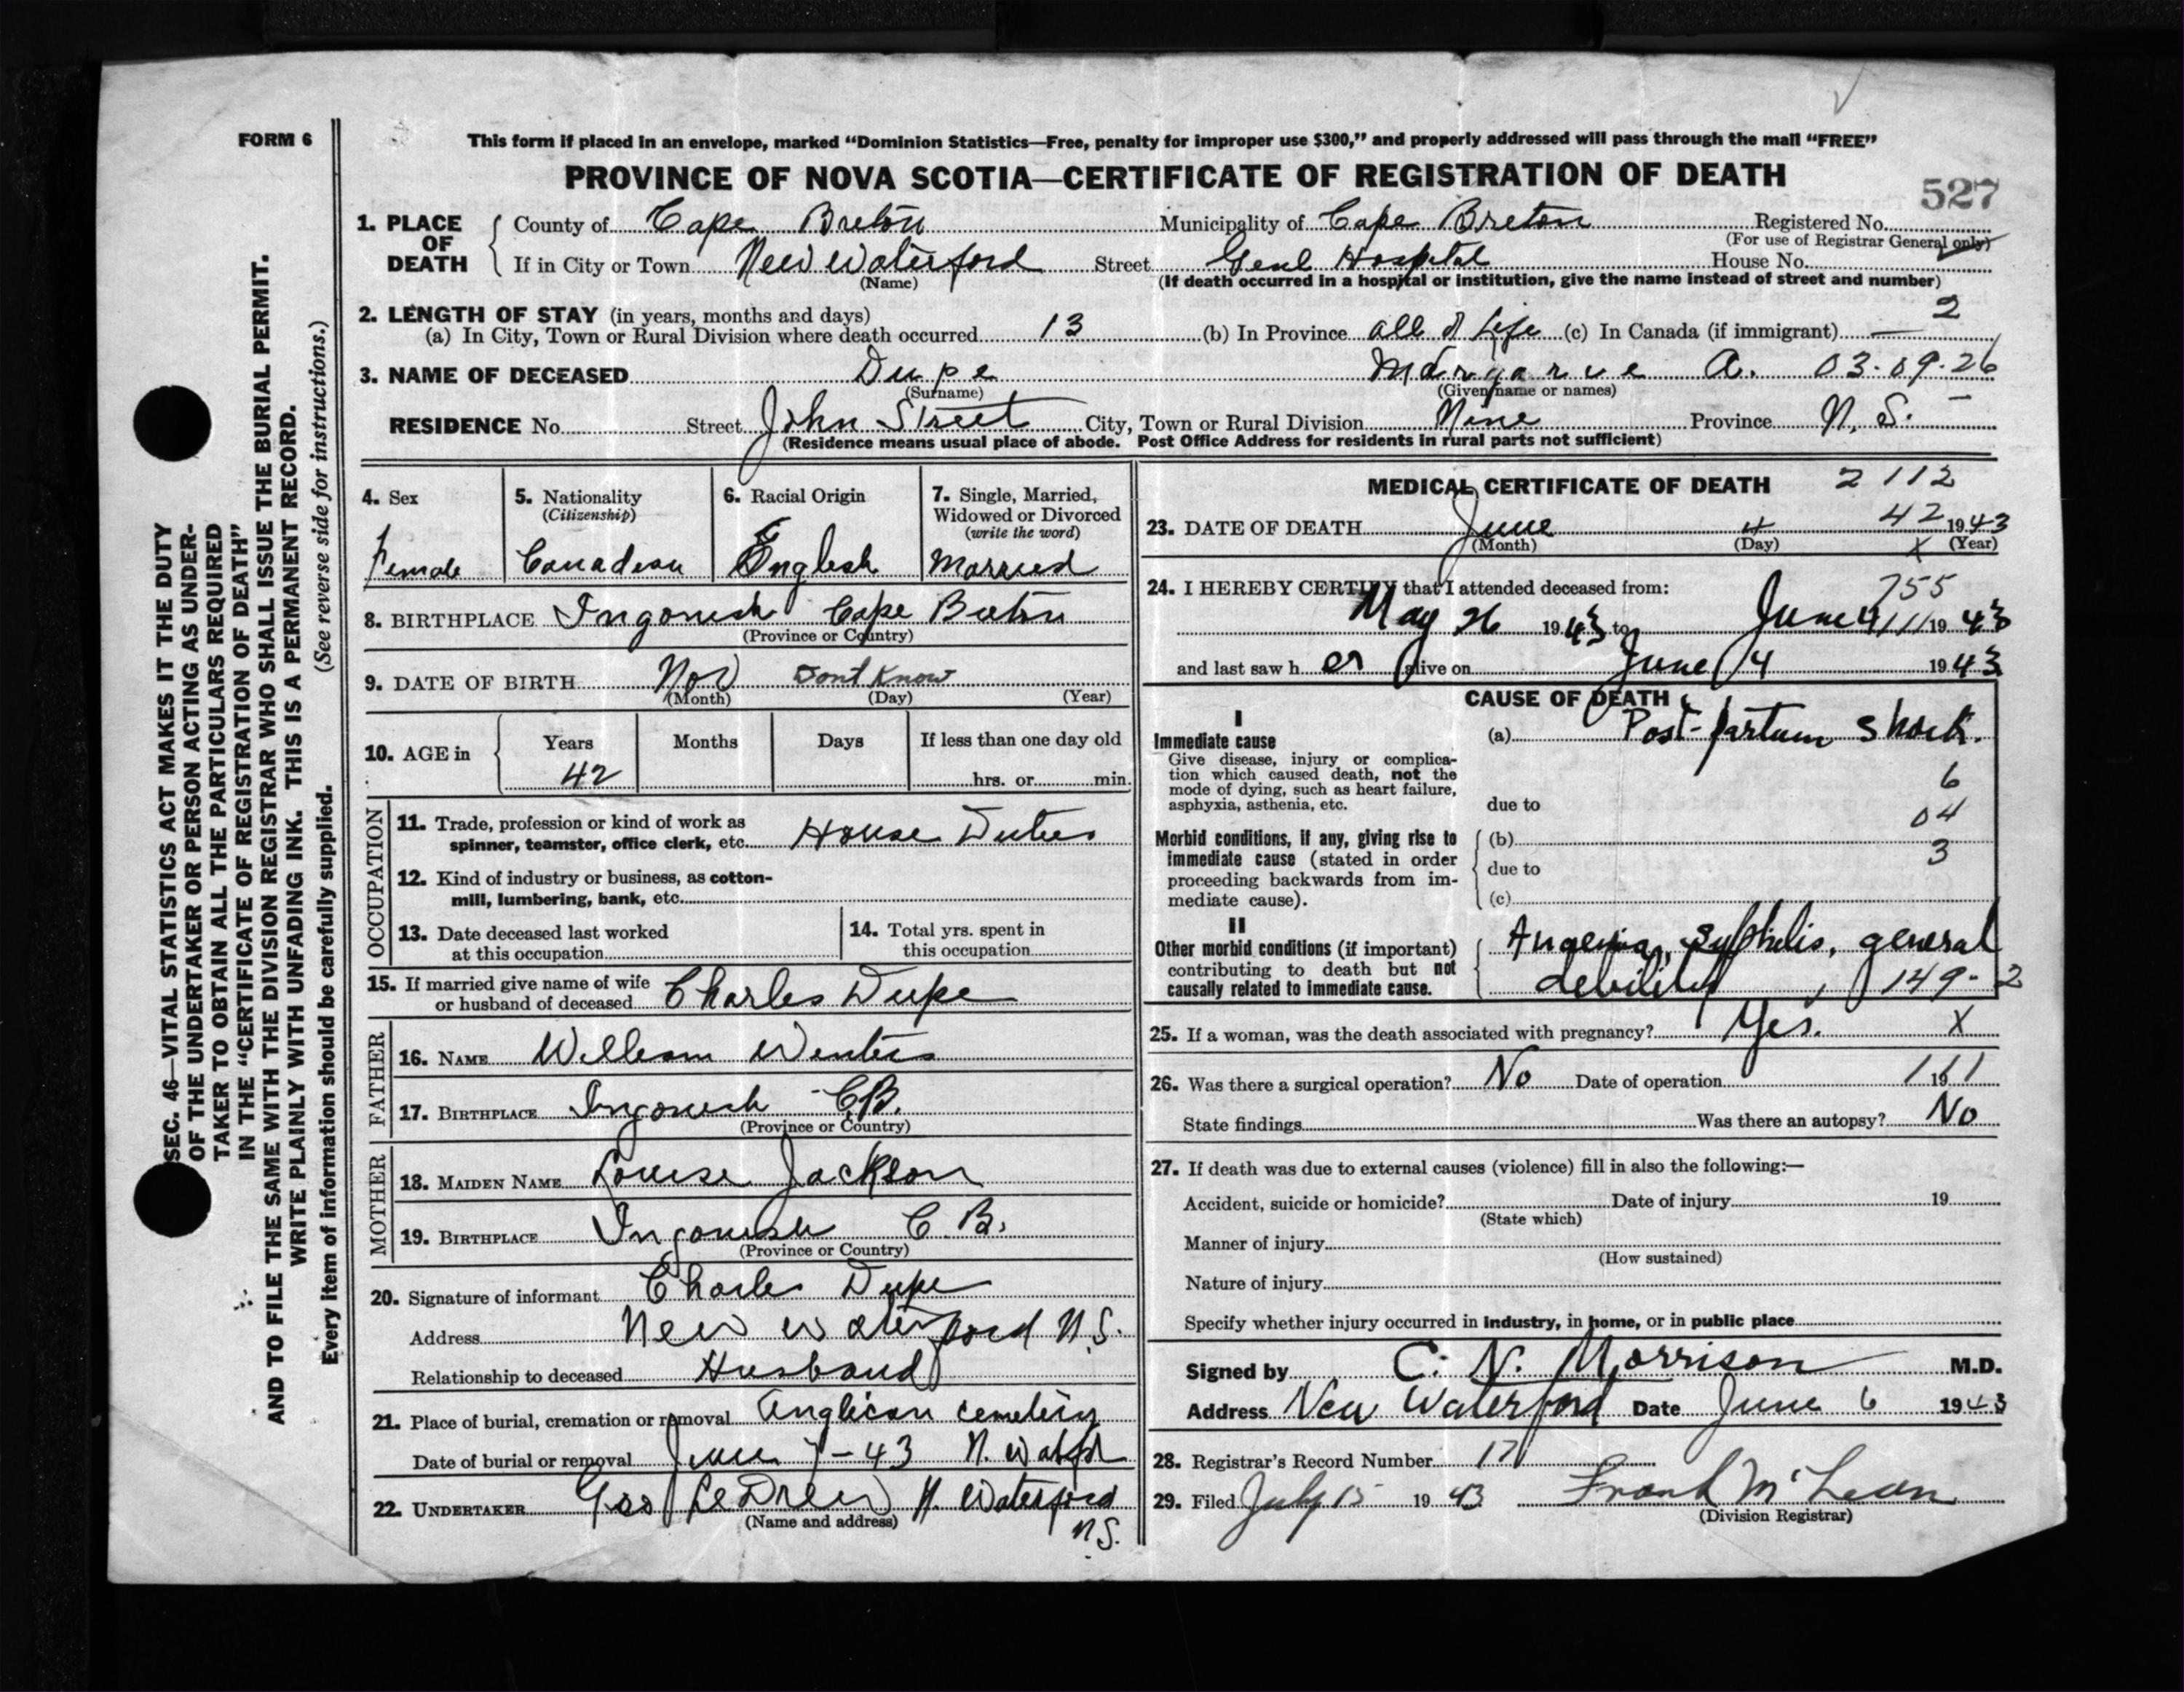 FORM 6
This form if placed in an envelope, marked “Dominion Statistics—Free, penalty for improper use $300,” and properly addressed will pass through the mail “FREE”
PROVINCE OF NOVA SCOTIA—CERTIFICATE OF REGISTRATION OF DEATH
527
1. PLACE OF DEATH
County of Cape Breton Municipality of Cape Breton Registered No.
(For use of Registrar General only)
If in City or Town New Waterford Street Genl Hospital House No.
(Name) (If death occurred in a hospital or institution, give the name instead of street and number)
2. LENGTH OF STAY (in years, months and days) 2
(a) In City, Town or Rural Division where death occurred 13 (b) In Province all of Life (c) In Canada (if immigrant) —
3. NAME OF DECEASED Dupe A. 03.09.26
(Surname) (Given name or names)
RESIDENCE No. Street John Street City, Town or Rural Division Nine Province N. S.
(Residence means usual place of abode. Post Office Address for residents in rural parts not sufficient)
4. Sex
Female
5. Nationality
(Citizenship)
Canadian
6. Racial Origin
English
7. Single, Married,
Widowed or Divorced
(write the word)
Married
8. BIRTHPLACE Ingonish Cape Breton
(Province or Country)
9. DATE OF BIRTH Nov Dont Know
(Month) (Day) (Year)
10. AGE in Years Months Days If less than one day old
42 hrs. or min.
OCCUPATION
11. Trade, profession or kind of work as
spinner, teamster, office clerk, etc. House Duties
12. Kind of industry or business, as cotton-
mill, lumbering, bank, etc.
13. Date deceased last worked
at this occupation
14. Total yrs. spent in
this occupation
15. If married give name of wife
or husband of deceased Charles Dupe
FATHER
16. NAME William Winters
17. BIRTHPLACE Ingonish C.B.
(Province or Country)
MOTHER
18. MAIDEN NAME Louise Jackson
19. BIRTHPLACE Ingonish C. B.
(Province or Country)
20. Signature of informant Charles Dupe
Address New Waterford N.S.
Relationship to deceased Husband
21. Place of burial, cremation or removal Anglican Cemetery
Date of burial or removal June 7-43 N. Watfd
22. UNDERTAKER Geo LeDrew N. Waterford
(Name and address) N.S.
MEDICAL CERTIFICATE OF DEATH 2112
42
23. DATE OF DEATH June 4 1943
(Month) (Day) (Year)
X
24. I HEREBY CERTIFY that I attended deceased from:
755
May 26 1943 to June 4 1943
and last saw h er alive on June 4 1943
CAUSE OF DEATH
I
Immediate cause
Give disease, injury or complica-
tion which caused death, not the
mode of dying, such as heart failure,
asphyxia, asthenia, etc.
(a) Post-partum shock.
6
due to
04
Morbid conditions, if any, giving rise to
immediate cause (stated in order
proceeding backwards from im-
mediate cause).
(b)
3
due to
(c)
II
Other morbid conditions (if important)
contributing to death but not
causally related to immediate cause.
syphilis, general
debility 149-2
25. If a woman, was the death associated with pregnancy? Yes. X
26. Was there a surgical operation? No Date of operation 19
State findings Was there an autopsy? No
27. If death was due to external causes (violence) fill in also the following:—
Accident, suicide or homicide? Date of injury 19
(State which)
Manner of injury
(How sustained)
Nature of injury
Specify whether injury occurred in industry, in home, or in public place
Signed by C. N. Morrison M.D.
Address New Waterford Date June 6 1943
28. Registrar's Record Number 171
29. Filed July 15 1943 Frank McLean
(Division Registrar)
SEC. 46—VITAL STATISTICS ACT MAKES IT THE DUTY
OF THE UNDERTAKER OR PERSON ACTING AS UNDER-
TAKER TO OBTAIN ALL THE PARTICULARS REQUIRED
IN THE “CERTIFICATE OF REGISTRATION OF DEATH”
AND TO FILE THE SAME WITH THE DIVISION REGISTRAR WHO SHALL ISSUE THE BURIAL PERMIT.
WRITE PLAINLY WITH UNFADING INK. THIS IS A PERMANENT RECORD.
(See reverse side for instructions.)
Every item of information should be carefully supplied.